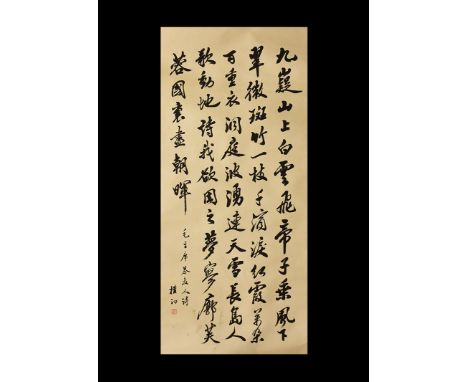 九嶷山上白雲飛帝子乘風下
翠微斑竹一枝千滴淚紅霞萬朵
百重衣洞庭波湧連天雪長島人
歌動地詩我欲因之夢寥廓芙
蓉國裏盡朝暉
毛主席答友人詩
樸初